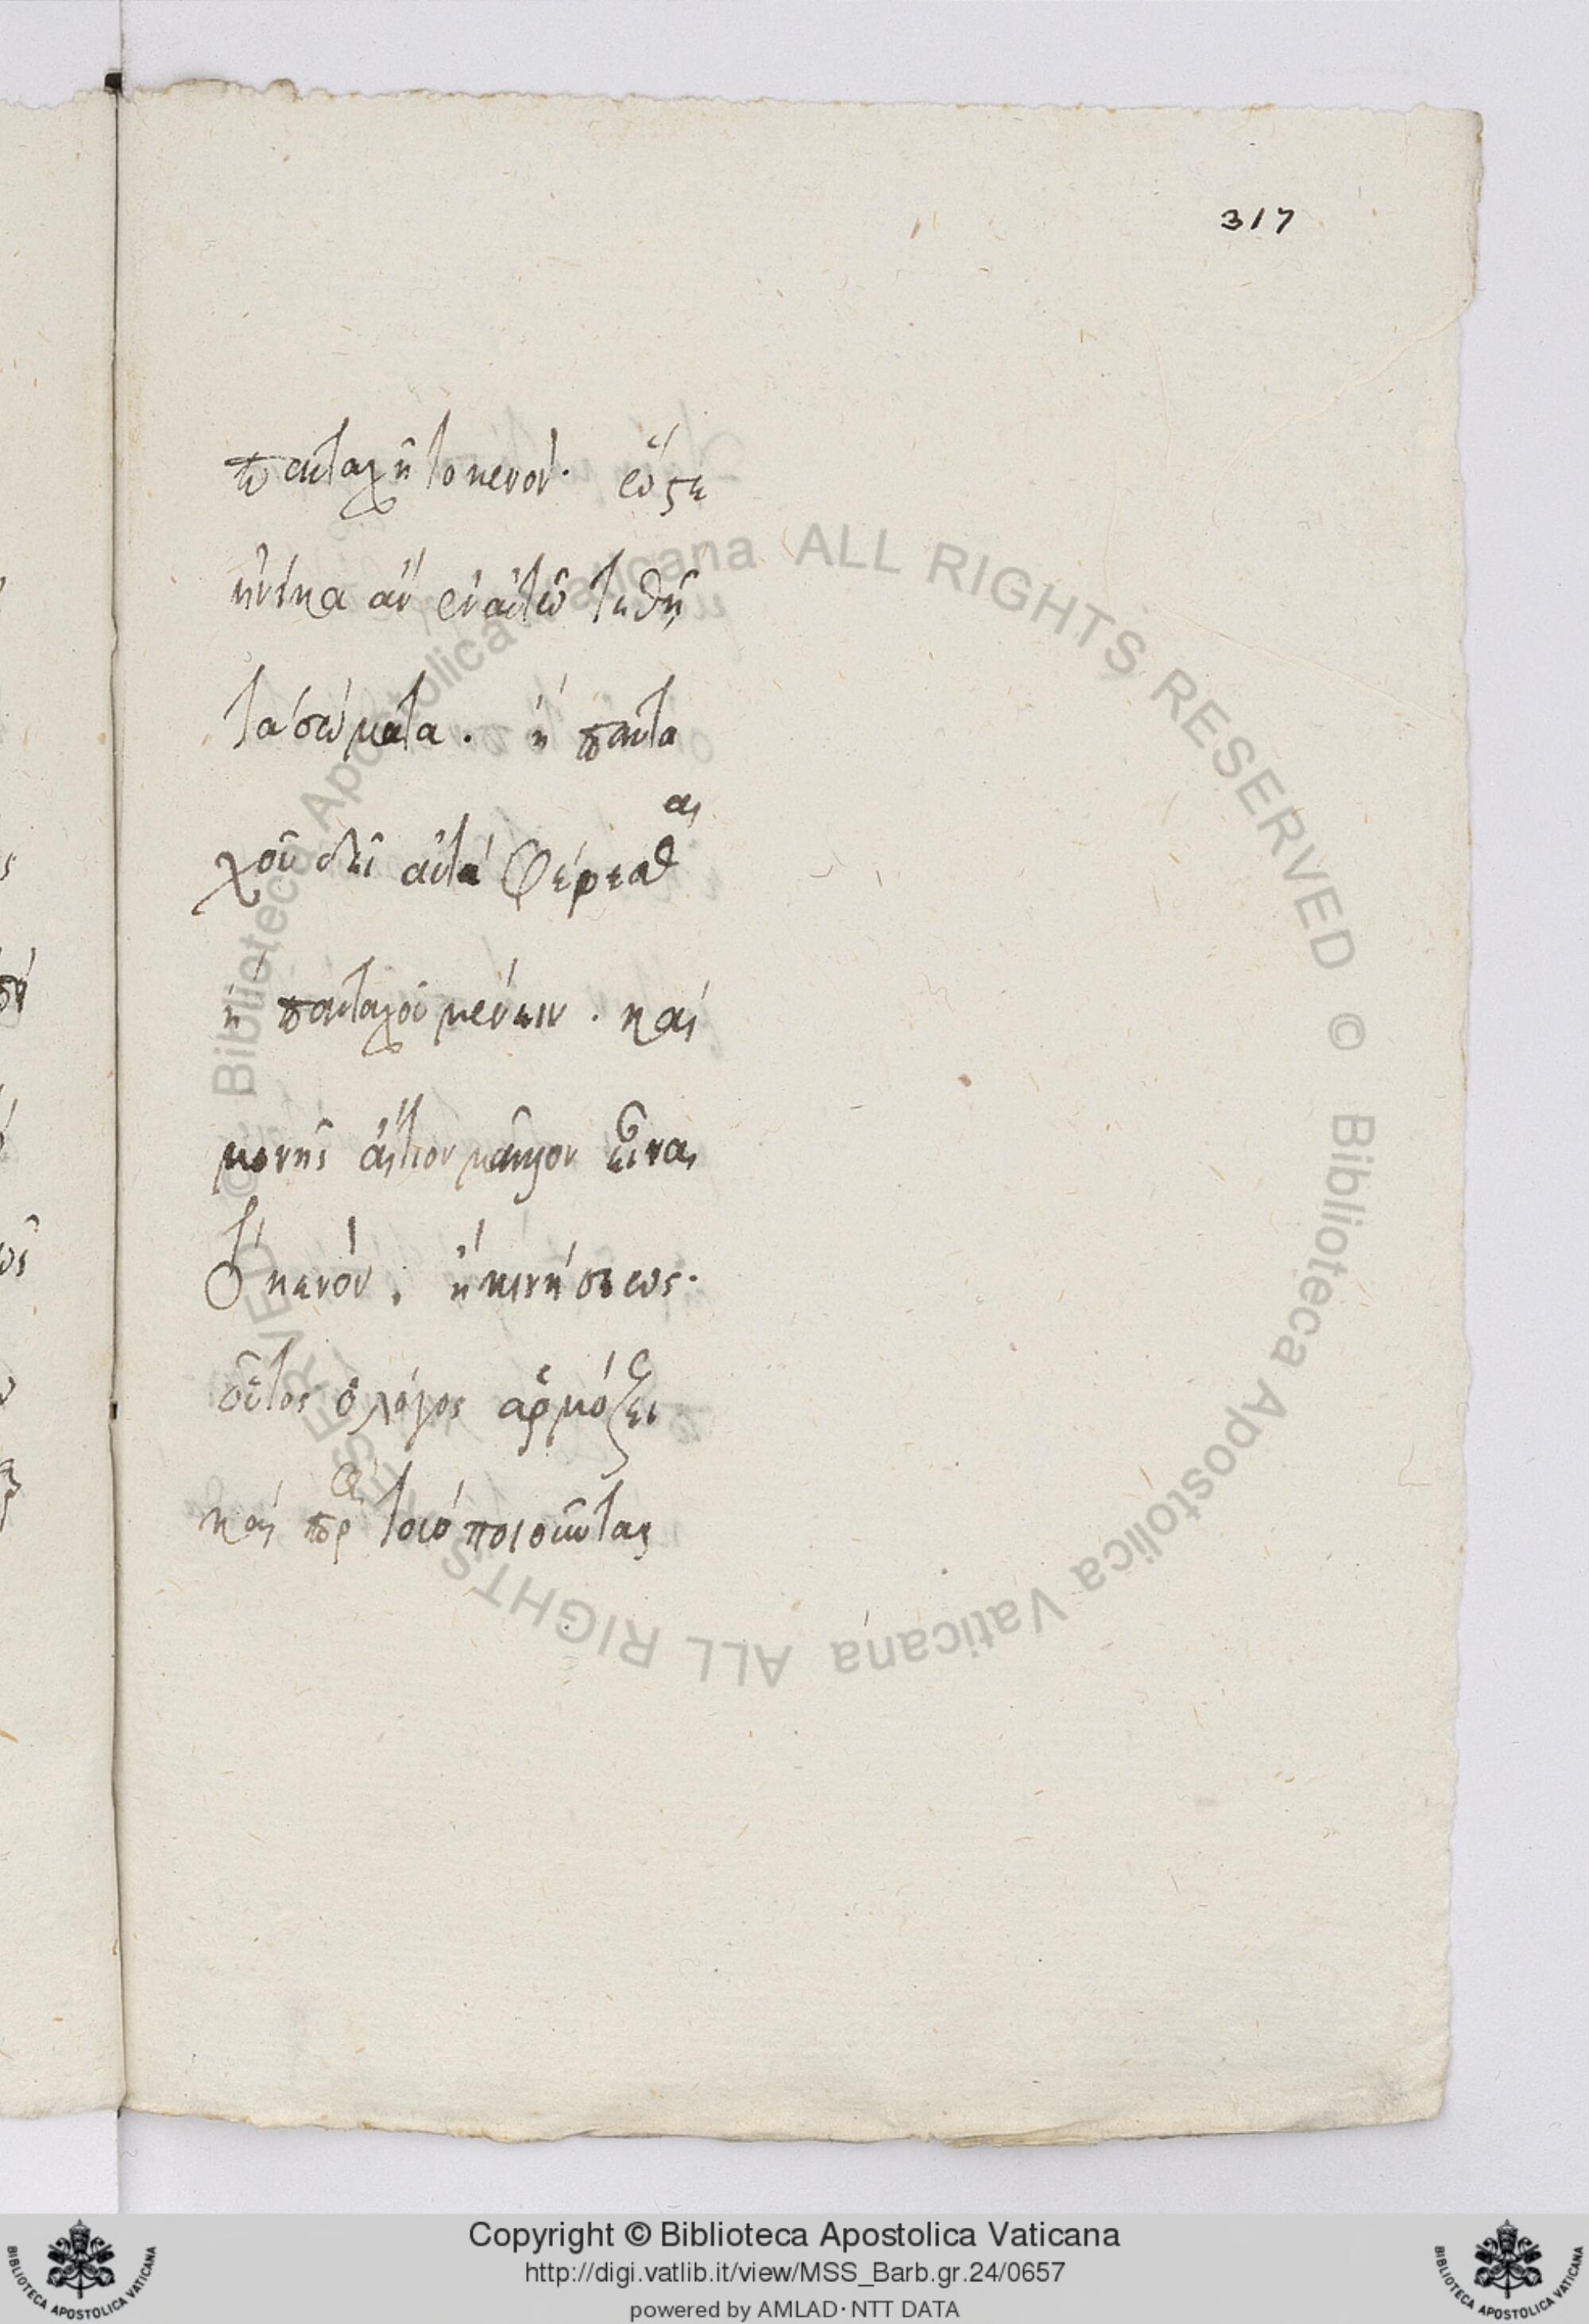 317
πανταχῆ το κενον. ὥστε
ἡνίκα ἂν ἐν ἀυτῶ τεθῆ
τα σώματα. ἢ παντα
χοῦ δεῖ ἀυτὰ φέρεσθαι
ἢ πανταχοῦ μένειν. και
μονῆς ἄιτιον μᾶλλον εἶναι
τὸ κενὸν. ἢ κινήσεως.
οὗτος ὁ λόγος ἁρμόζει
καὶ προς τοὺς ποιοῦντας
© Biblioteca Apostolica Vaticana ALL RIGHTS RESERVED © Biblioteca Apostolica Vaticana ALL RIGHTS RESERVED
Copyright © Biblioteca Apostolica Vaticana
http://digi.vatlib.it/view/MSS_Barb.gr.24/0657
powered by AMLAD·NTT DATA
BIBLIOTECA APOSTOLICA VATICANA
BIBLIOTECA APOSTOLICA VATICANA